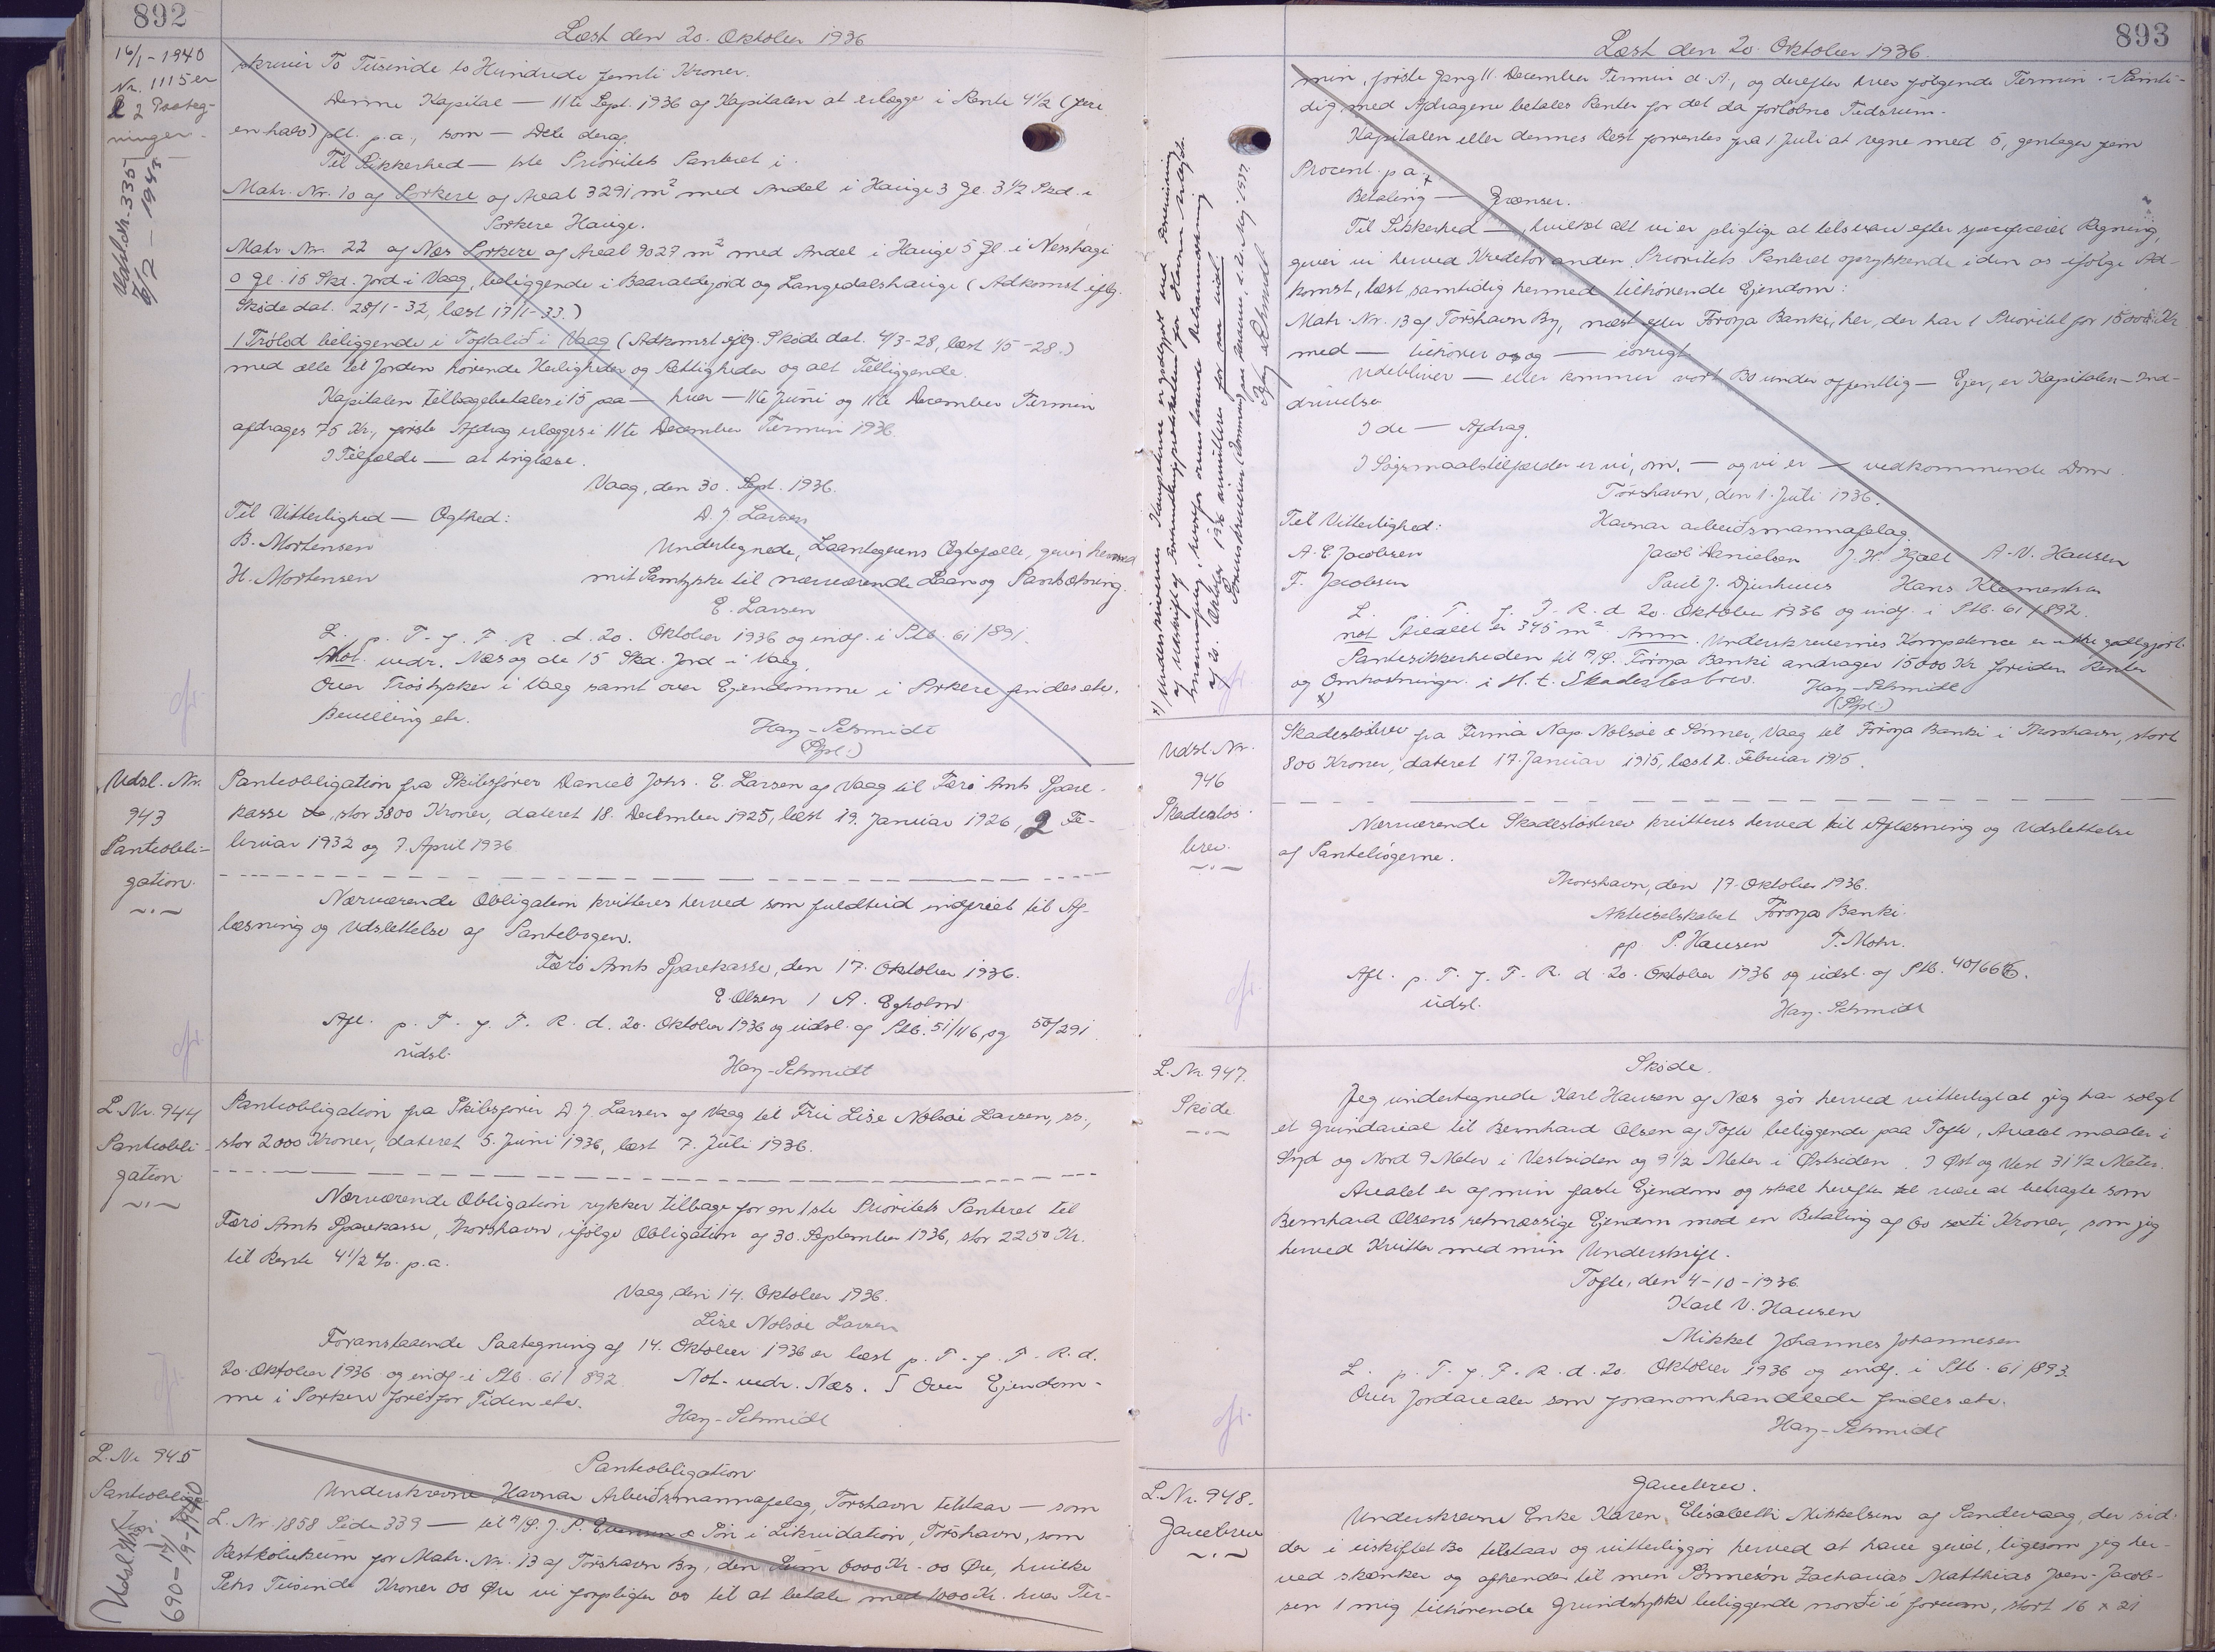 892
Læst den 20. Oktober 1936
16/1-1940
Nr. 1115 er
2 Paateg-
ninger.
Udsl. Nr. 335
6/2-1943
skriver To Tusinde to Hundrede femti Kroner.
Denne Kapital — 11te Sept. 1936 af Kapitalen at erlægge i Rente 4 1/2 (fire
en halv) pCt. p.a., som — Dele deraf.
Til Sikkerhed — 1ste Prioritets Panteret i.
Matr. Nr. 10 af Porkere af Areal 3291 m² med Andel i Hauge 3 Gl. 3 1/2 Skd. i
Porkere Hauge.
Matr. Nr. 22 af Næs Porkere af Areal 9027 m² med Andel i Hauge 5 Gl. i Nesshagi
0 Gl. 15 Skd. Jord i Vaag, beliggende i Baaraldejord og Langedalshauge (Adkomst iflg.
Skøde dat. 28/1-32, læst 17/1-33.)
1 Trølod beliggende i Toftalið i Vaag (Adkomst iflg. Skøde dat. 4/3-28, læst 1/5-28.)
med alle til Jorden hørende Herligheder og Rettigheder og alt Tilliggende.
Kapitalen tilbagebetales i 15 paa — hver — 11te Juni og 11te December Termin
afdrages 75 Kr., første Afdrag erlægges i 11te December Termin 1936.
I Tilfælde — at tinglæse.
Vaag, den 30. Sept. 1936.
Til Vitterlighed — Ægthed: D. J. Larsen
B. Mortensen Undertegnede, Laantagerens Ægtefælle, giver herved
H. Mortensen mit Samtykke til nærværende Laan og Pantsætning.
E. Larsen
L. p. T. f. F. R. d. 20. Oktober 1936 og indf. i Ptb. 61/891.
Not. vedr. Næs og de 15 Skd. Jord i Vaag.
Over Trøstykker i Vaag samt over Ejendomme i Porkere findes etc.
Bevilling etc.
Hay-Schmidt
(Spl.)
Udsl. Nr.
943
Panteobli-
gation.
Panteobligation fra Skibsfører Daniel Johs. E. Larsen af Vaag til Færø Amts Spare-
kasse, stor 3800 Kroner, dateret 18. December 1925, læst 19. Januar 1926, 2 Fe-
bruar 1932 og 7. April 1936
Nærværende Obligation kvitteres herved som fuldtud indfriet til Af-
læsning og Udslettelse af Pantebogen.
Færø Amts Sparekasse, den 17. Oktober 1936.
E. Olsen / A. Egholm
Afl. p. T. f. F. R. d. 20. Oktober 1936 og udsl. af Ptb. 51/116 og 50/291
udsl.
Hay-Schmidt
L. Nr. 944
Panteobli-
gation
Panteobligation fra Skibsfører D. J. Larsen af Vaag til Fru Lise Nolsøe Larsen, ss.,
stor 2000 Kroner, dateret 5. Juni 1936, læst 7. Juli 1936.
Nærværende Obligation rykker tilbage for en 1ste Prioritets Panteret til
Færø Amts Sparekasse, Thorshavn, ifølge Obligation af 30. September 1936, stor 2250 Kr.
til Rente 4 1/2 % p.a.
Vaag, den 14. Oktober 1936.
Lise Nolsøe Larsen
Foranstaaende Paategning af 14. Oktober 1936 er læst p. T. f. F. R. d.
20. Oktober 1936 og indf. i Ptb. 61/892 Not. vedr. Næs. Over Ejendom-
me i Porkere for Tiden etc.
Hay-Schmidt
L. Nr. 945
Panteobliga-
Udsl. Nr.
690 - 19/-1940
Panteobligation
Underskrevne Havnar Arbeiðsmannafelag, Tórshavn tilstaar — som
L. Nr. 1858 Side 339 — til A/S. J. P. Evensen & Søn i Likvidation, Tórshavn, som
Restkøbesum for Matr. Nr. 13 af Tórshavn By, den Sum 6000 Kr. 00 Øre, hvilke
Seks Tusinde Kroner 00 Øre vi forpligter os til at betale med 1000 Kr. hver Ter-
893
Læst den 20. Oktober 1936.
min, første Gang 11. December Termin d. A., og derefter hver følgende Termin. — Samti-
dig med Afdragene betales Renter for det da forløbne Tidsrum.
Kapitalen eller dennes Rest forrentes fra 1 Juli at regne med 5, gentager fem
Procent p.a.
Betaling — Grænser.
Til Sikkerhed —, hvilket alt vi er pligtige at tilsvare efter specificeret Regning,
giver vi herved Kreditor anden Prioritets Panteret oprykkende i den os ifølge Ad-
komst, læst samtidig hermed tilhørende Ejendom:
Matr. Nr. 13 af Tórshavn By, næst efter Føroya Banki, her, der har 1 Prioritet for 15000 Kr.
med — tilhører os og — iøvrigt
Udebliver — eller kommer vort Bo under offentlig — Ejer, er Kapitalen — Ind-
drivelse
I de — Afdrag.
I Søgsmaalstilfælde er vi, om. — og vi er — vedkommende Dom.
Tórshavn, den 1. Juli 1936.
Til Vitterlighed: Havnar arbeiðsmannafelag.
A. E. Jacobsen Jacob Danielsen J. H. Hjall A. V. Hansen
F. Jacobsen Poul J. Djurhuus Hans Klementsen
L. T. f. F. R. d. 20. Oktober 1936 og indf. i Ptb. 61/892.
not. Arealet er 345 m². Anm. Underskrivernes Kompetence er ikke godtgjort.
Pantesikkerheden til A/S. Føroya Banki andrager 15000 Kr foruden Renter
og Omkostninger i H. t. Skadesløsbrev.
Hay-Schmidt
(Spl.)
x) Underskrivernes Kompetence er godtgjort ved Forevisning
af Udskrift af for Havnar Arbejds-
mannafelag, hvorfor ovenstaaende Retsanmærkning
af 20. Oktober 1936 annulleres for saa vidt.
Sorenskriveren Færøerne, d. 1937.
Hay-Schmidt
Udsl. Nr.
946
Skadesløs-
brev.
Skadesløsbrev fra Firma Nap. Nolsøe & Sønner, Vaag til Føroya Banki i Thorshavn, stort
800 Kroner, dateret 17. Januar 1915, læst 2. Februar 1915.
Nærværende Skadesløsbrev kvitteres herved til Aflæsning og Udslettelse
af Pantebøgerne.
Thorshavn, den 17. Oktober 1936.
Aktieselskabet Føroya Banki.
pp. P. Hansen T. Mohr.
Afl. p. T. f. F. R. d. 20. Oktober 1936 og udsl. af Ptb. 40/666.
udsl.
Hay-Schmidt
L. Nr. 947.
Skøde
Skøde.
Jeg undertegnede Karl Hansen af Næs gör herved vitterligt at jeg har solgt
et Grundareal til Bernhard Olsen af Tofte beliggende paa Tofte, Arealet maaler i
Syd og Nord 9 Meter i Vestsiden og 9 1/2 Meter i Østsiden. I Øst og Vest 31 1/2 Meter.
Arealet er af min faste Ejendom og skal herefter være at betragte som
Bernhard Olsens retmæssige Ejendom mod en Betaling af 60 sexti Kroner, som jeg
herved Kvitter med min Underskrift.
Tofte, den 4-10-1936.
Karl V. Hansen
Mikkel Johannes Johannesen
L. p. T. f. F. R. d. 20. Oktober 1936 og indf. i Ptb. 61/893.
Over Jordarealer som foranomhandlede findes etc.
Hay-Schmidt
L. Nr. 948.
Gavebrev
Gavebrev.
Underskrevne Enke Karen Elisabeth Mikkelsen af Sandevaag, der sid-
der i uskiftet Bo tilstaar og vitterliggør herved at have givet, ligesom jeg her-
ved skænker og afhender til min Sønnesøn Zacharias Matthias Joen-Jacob-
sen 1 mig tilhørende Grundstykke beliggende norði i foruum, stort 16 x 21